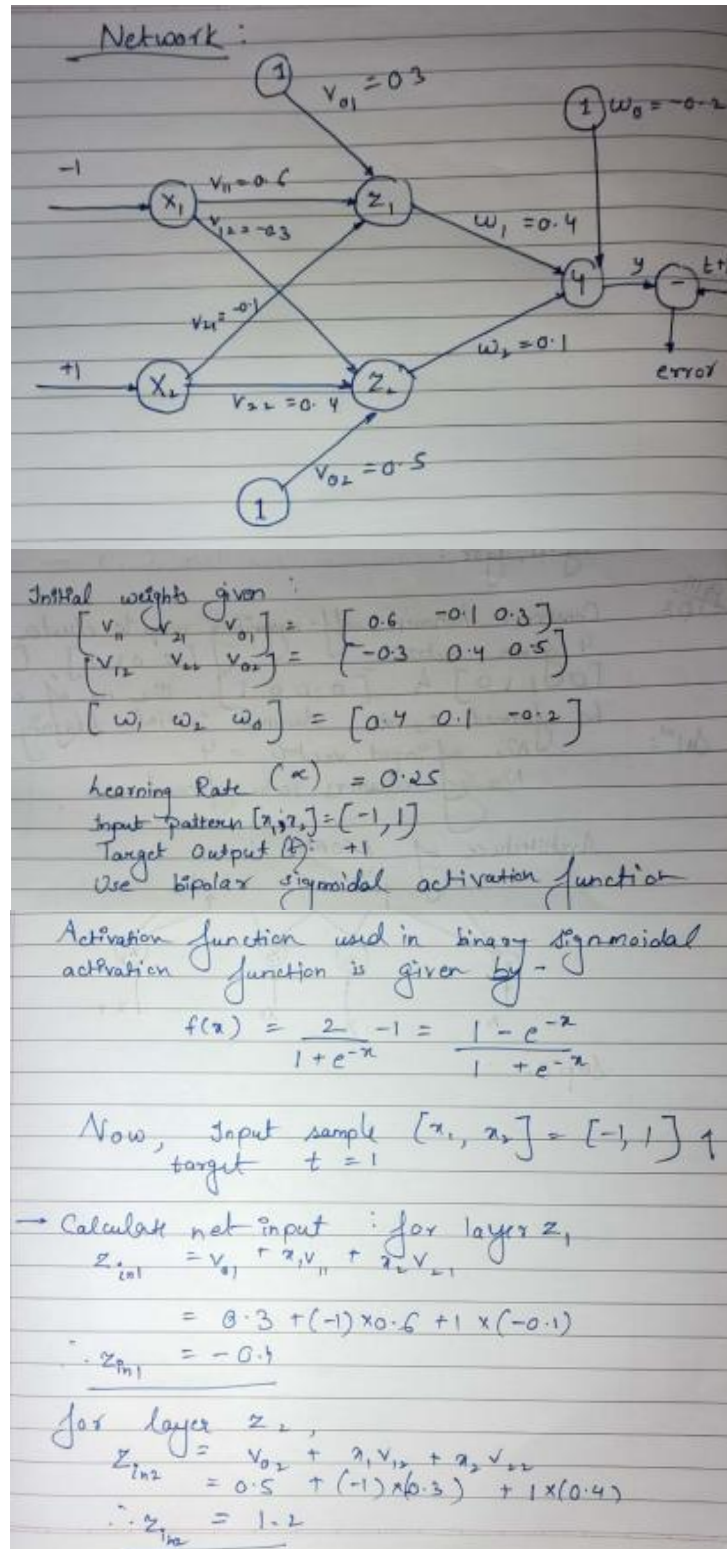 Network :
1
V01 = 0.3
1
w0 = -0.2
-1
X1
V11 = 0.6
Z1
V12 = -0.3
w1 = 0.4
Y
y
-
t+
V21 = -0.1
error
+1
X2
V22 = 0.4
Z2
w2 = 0.1
V02 = 0.5
1
Initial weights given :
[ V11 V21 V01 ] = [ 0.6 -0.1 0.3 ]
[ V12 V22 V02 ] = [ -0.3 0.4 0.5 ]
[ w1 w2 w0 ] = [0.4 0.1 -0.2 ]
Learning Rate (α) = 0.25
Input pattern [x1, x2] = [-1, 1]
Target Output (t): +1
Use bipolar sigmoidal activation function
Activation function used in binary signmoidal
activation function is given by -
f(x) = 2 / (1 + e^-x) - 1 = (1 - e^-x) / (1 + e^-x)
Now, Input sample [x1, x2] = [-1, 1] &
target t = 1
→ Calculate net input : for layer z1
Zin1 = V01 + x1V11 + x2V21
= 0.3 + (-1) × 0.6 + 1 × (-0.1)
∴ Zin1 = -0.4
for layer z2,
Zin2 = V02 + x1V12 + x2V22
= 0.5 + (-1) × (0.3) + 1 × (0.4)
∴ Zin2 = 1.2